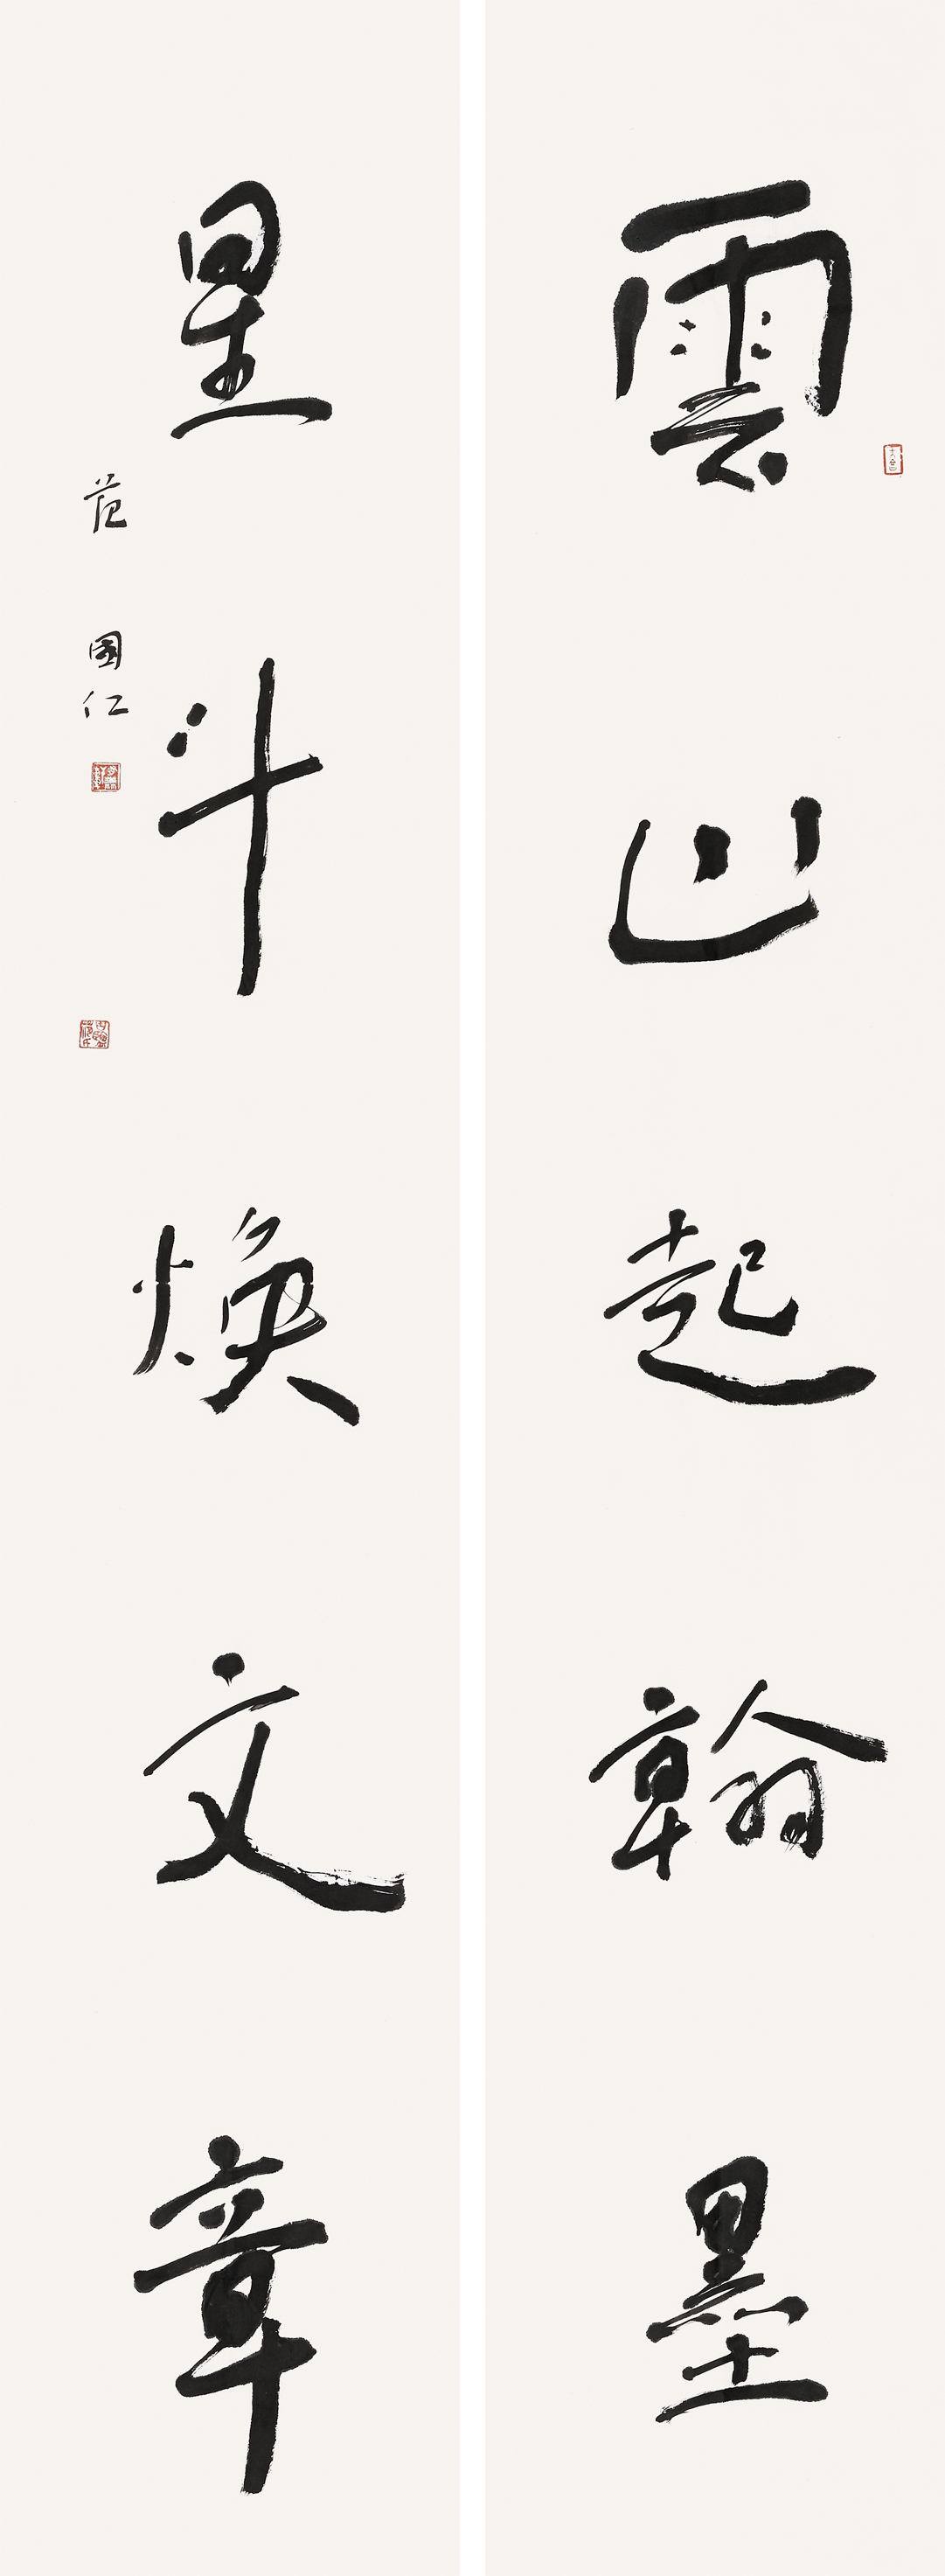 雲山起翰墨
星斗煥文章
范國仁